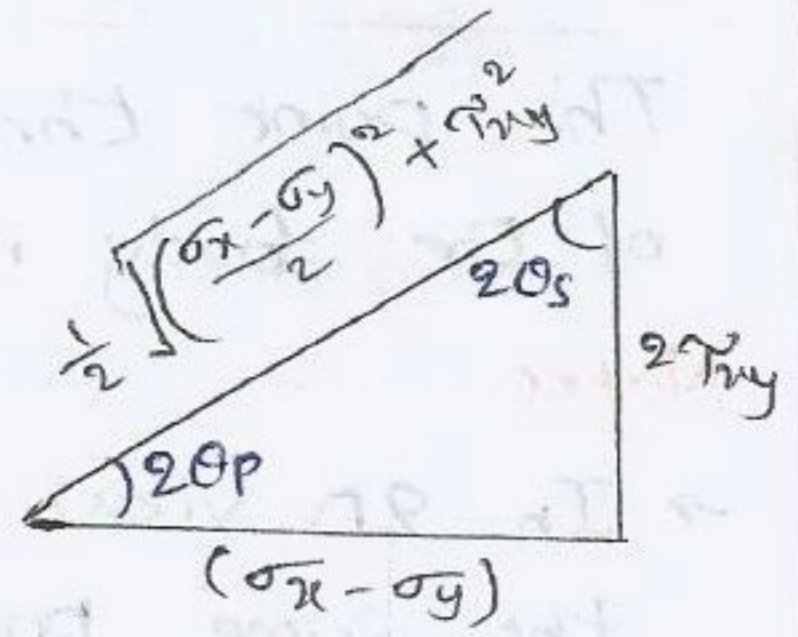 1/2 √((σx - σy)/2)² + τxy²
2θs
2τxy
2θp
(σx - σy)